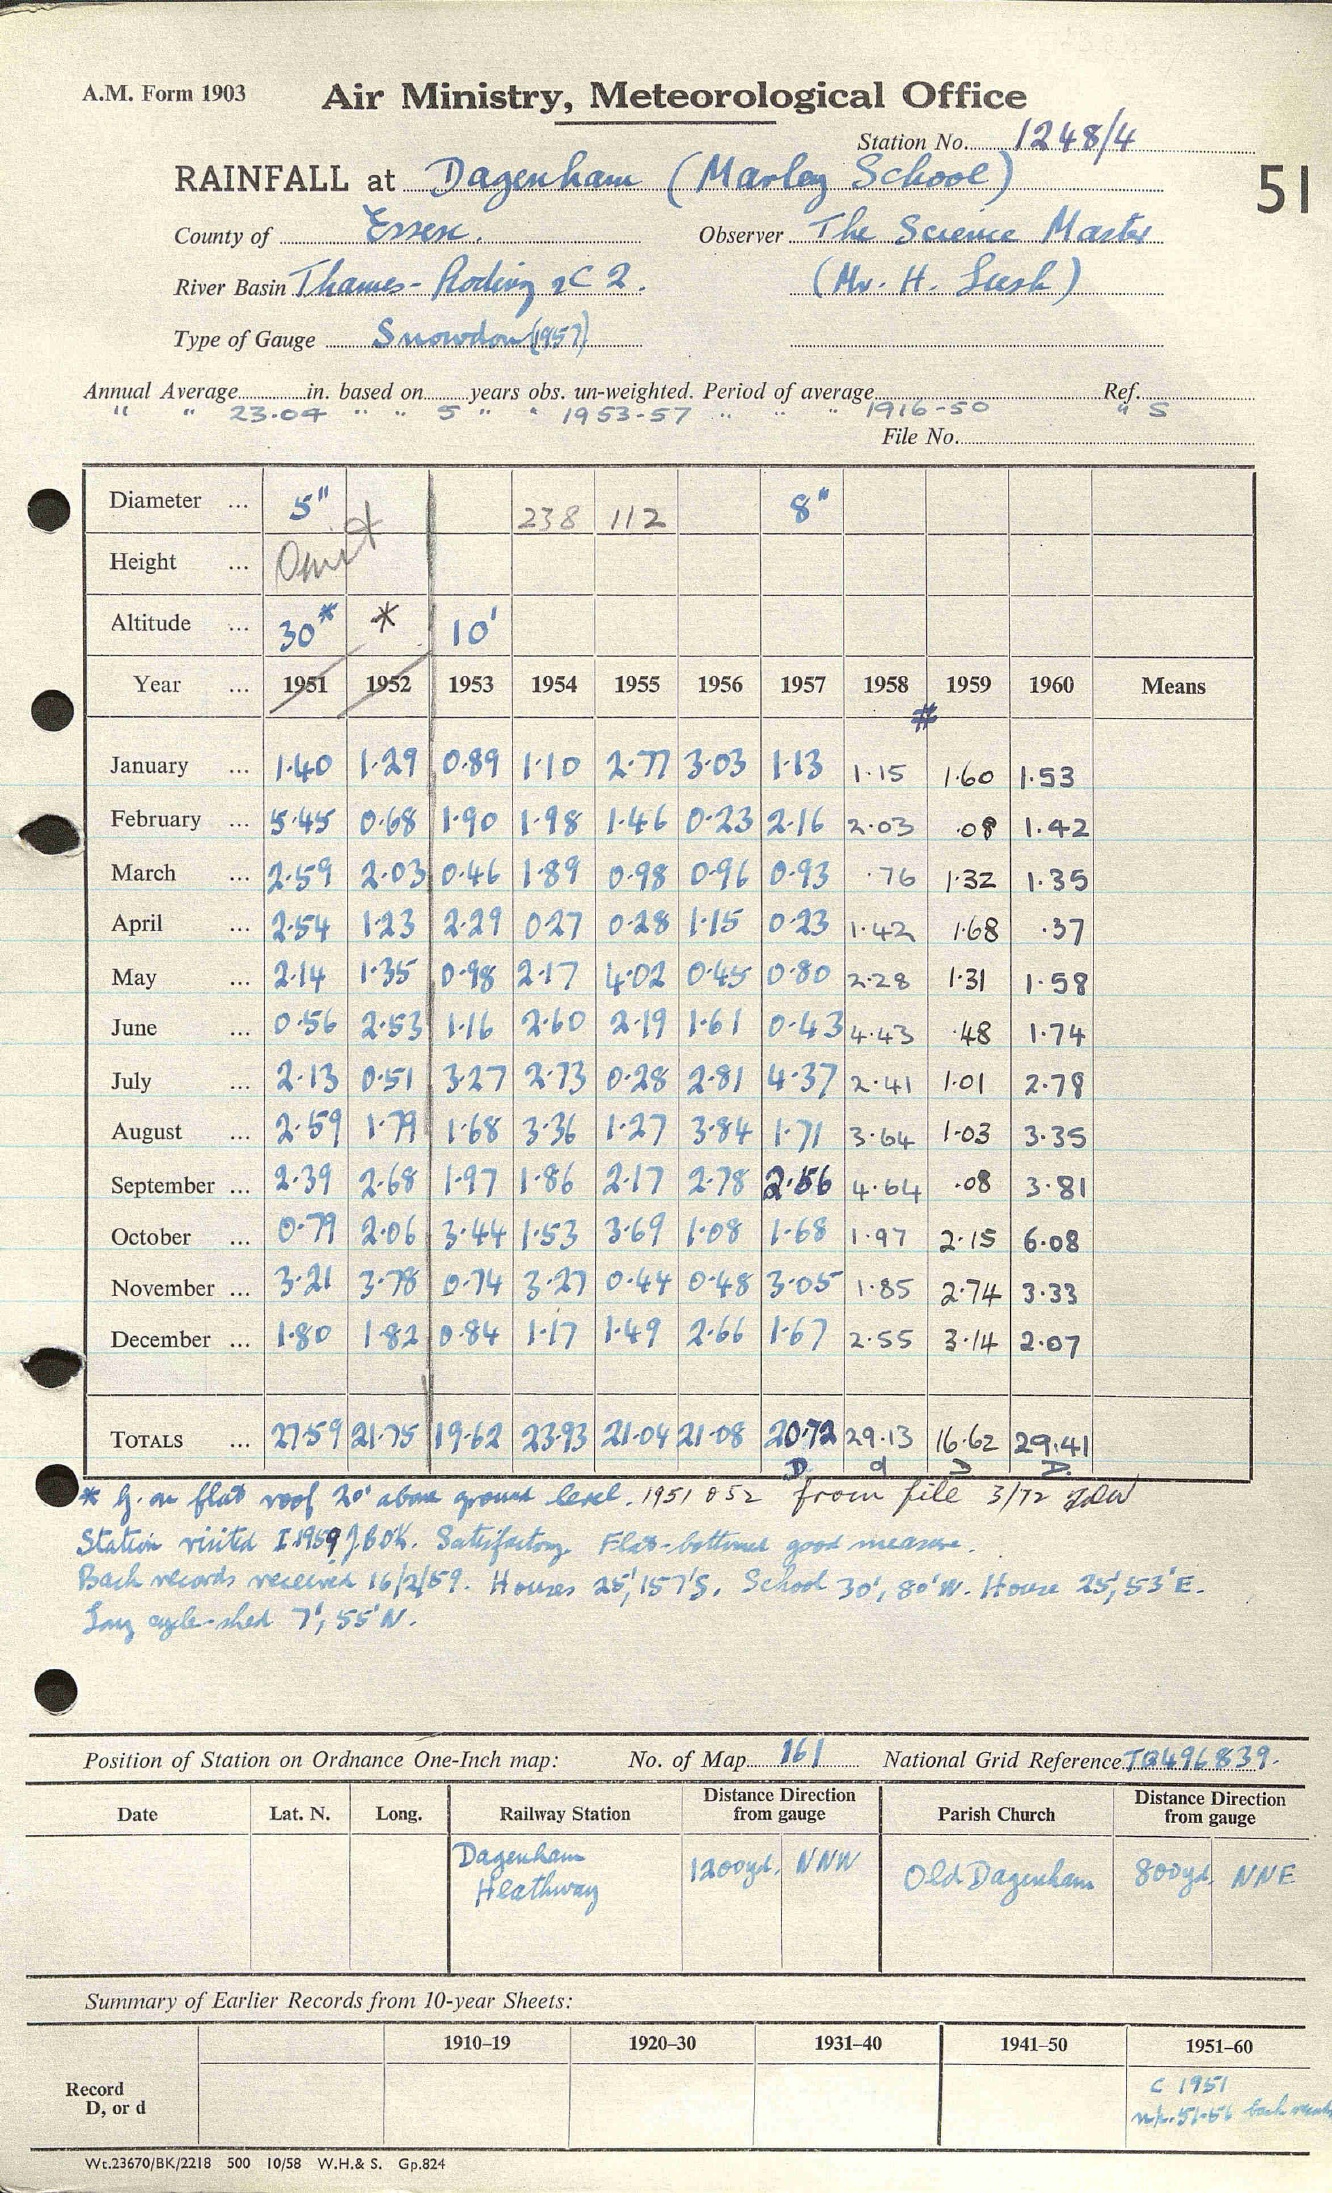 A.M. Form 1903 Air Ministry, Meteorological Office
Station No. 1248/4
RAINFALL at Dagenham (Marley School)
51
County of Essex. Observer The Science Master
River Basin Thames - Roding 2C2. (Mr. H. Lush)
Type of Gauge Snowdon (1957)
Annual Average in. based on years obs. un-weighted. Period of average Ref.
" " 23.04 " " 5 " " 1953-57 " " " 1916-50 " S
File No.
Diameter ... 5" 238 112 8"
Height ... Omit
Altitude ... 30* * 10'
Year ... 1951 1952 1953 1954 1955 1956 1957 1958 1959 1960 Means
#
January ... 1.40 1.29 0.89 1.10 2.77 3.03 1.13 1.15 1.60 1.53
February ... 5.45 0.68 1.90 1.98 1.46 0.23 2.16 2.03 .08 1.42
March ... 2.59 2.03 0.46 1.89 0.98 0.96 0.93 .76 1.32 1.35
April ... 2.54 1.23 2.29 0.27 0.28 1.15 0.23 1.42 1.68 .37
May ... 2.14 1.35 0.98 2.17 4.02 0.45 0.80 2.28 1.31 1.58
June ... 0.56 2.53 1.16 2.60 2.19 1.61 0.43 4.43 .48 1.74
July ... 2.13 0.51 3.27 2.73 0.28 2.81 4.37 2.41 1.01 2.78
August ... 2.59 1.79 1.68 3.36 1.27 3.84 1.71 3.64 1.03 3.35
September ... 2.39 2.68 1.97 1.86 2.17 2.78 2.56 4.64 .08 3.81
October ... 0.79 2.06 3.44 1.53 3.69 1.08 1.68 1.97 2.15 6.08
November ... 3.21 3.78 0.74 3.27 0.44 0.48 3.05 1.85 2.74 3.33
December ... 1.80 1.82 0.84 1.17 1.49 2.66 1.67 2.55 3.14 2.07
TOTALS ... 27.59 21.75 19.62 23.93 21.04 21.08 20.72 29.13 16.62 29.41
D d D D.
* G. on flat roof 20' above ground level. 1951 & 52 from file 3/72
Station visited I 1959 J.BOK. Satisfactory. Flat-bottomed good measure.
Back records received 16/2/59. Houses 25', 157'S. School 30', 80'W. House 25', 53'E.
Long cycle-shed 7', 55'N.
Position of Station on Ordnance One-Inch map: No. of Map 161 National Grid Reference TQ496839.
Date Lat. N. Long. Railway Station Distance Direction from gauge Parish Church Distance Direction from gauge
Dagenham Heathway 1200yd. NNW Old Dagenham 800yd. NNE
Summary of Earlier Records from 10-year Sheets:
1910–19 1920–30 1931–40 1941–50 1951–60
Record D, or d
C 1951
51-56 back records
Wt.23670/BK/2218 500 10/58 W.H.& S. Gp.824